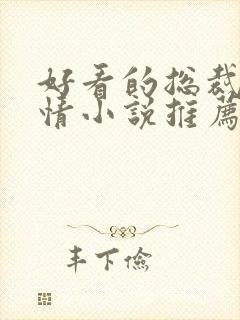 好看的总裁
情小说推薦
丰下俭